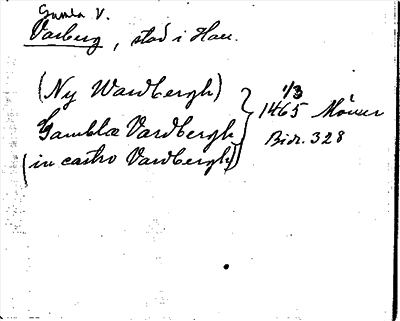 Gamla V.
Varberg, stad i Hall.
(Ny Wardbergh)
Gamblæ Vardbergh
(in castro Vardbergh)
1/3
1465
Bidr. 328